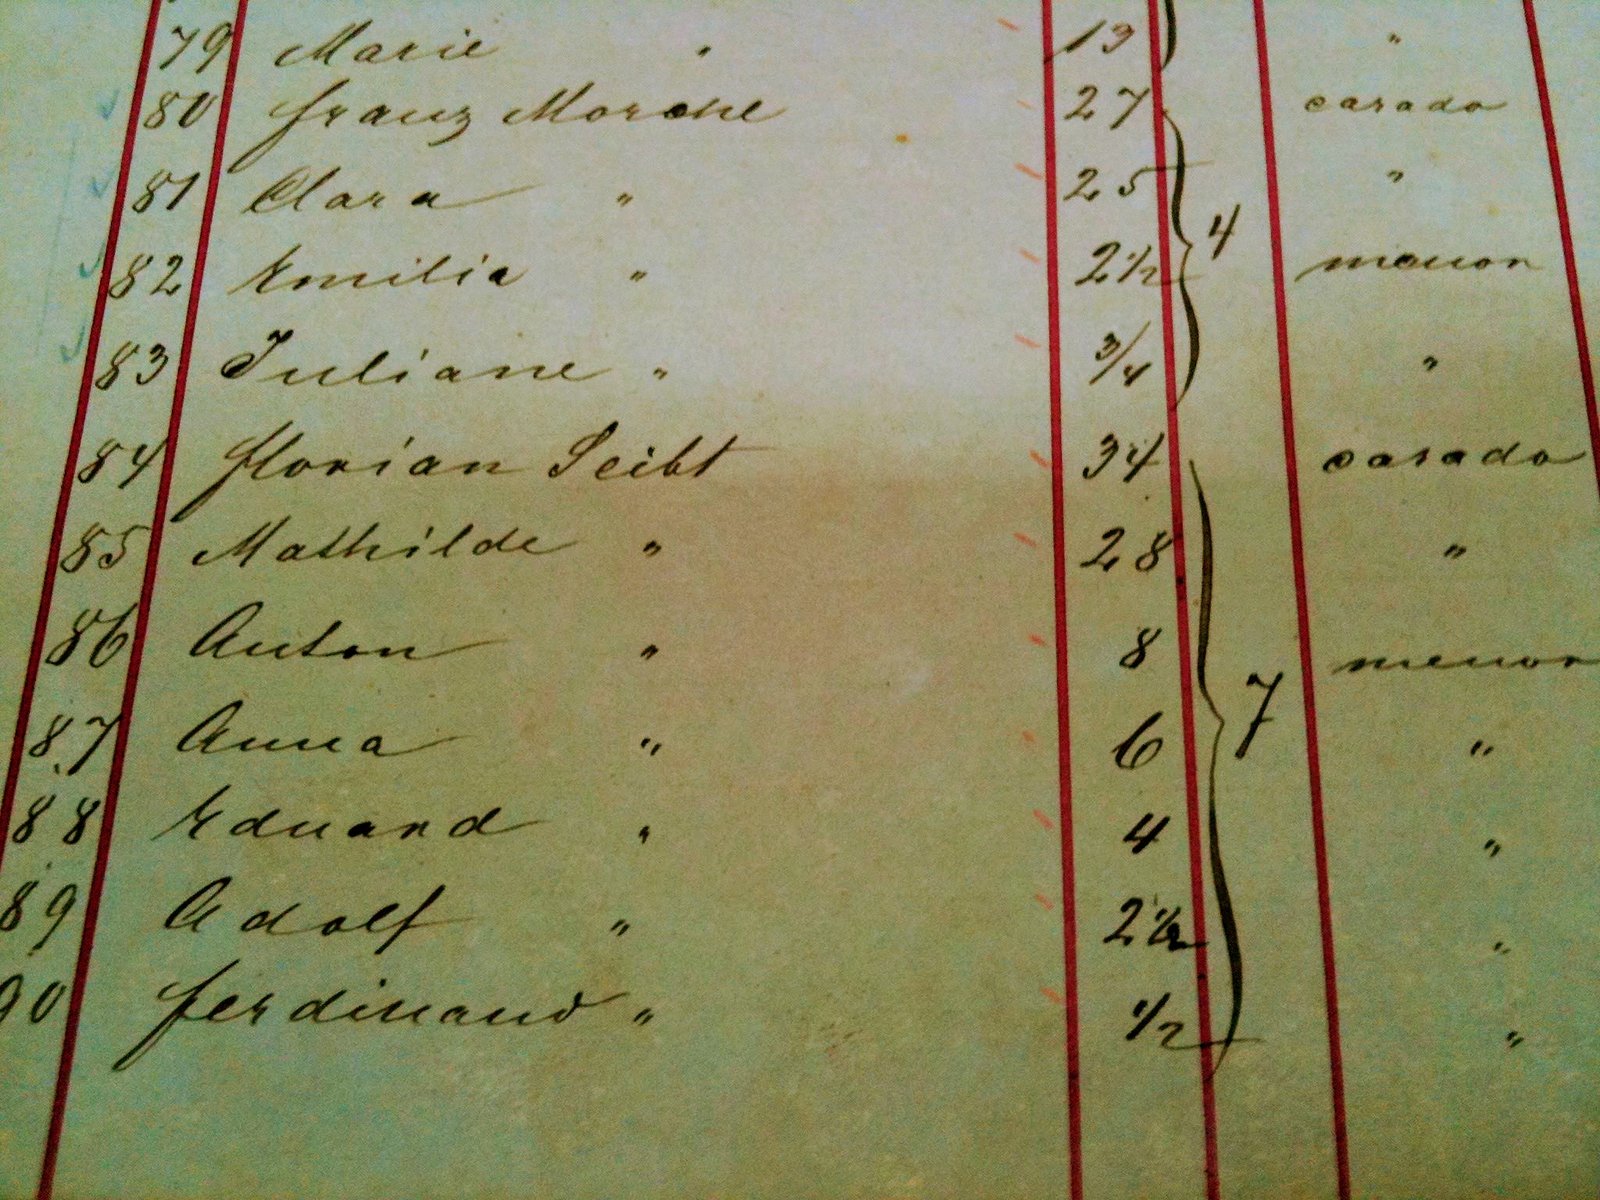 79 Marie " 13 "
80 Franz Morche 27 casado
81 Clara " 25 "
82 Emilia " 2 1/2 4 menor
83 Juliane " 3/4 "
84 Florian Seibt 34 casado
85 Mathilde " 28 "
86 Anton " 8 menor
87 Anna " 6 7 "
88 Eduard " 4 "
89 Adolf " 2 1/2 "
90 Ferdinand " 1/2 "